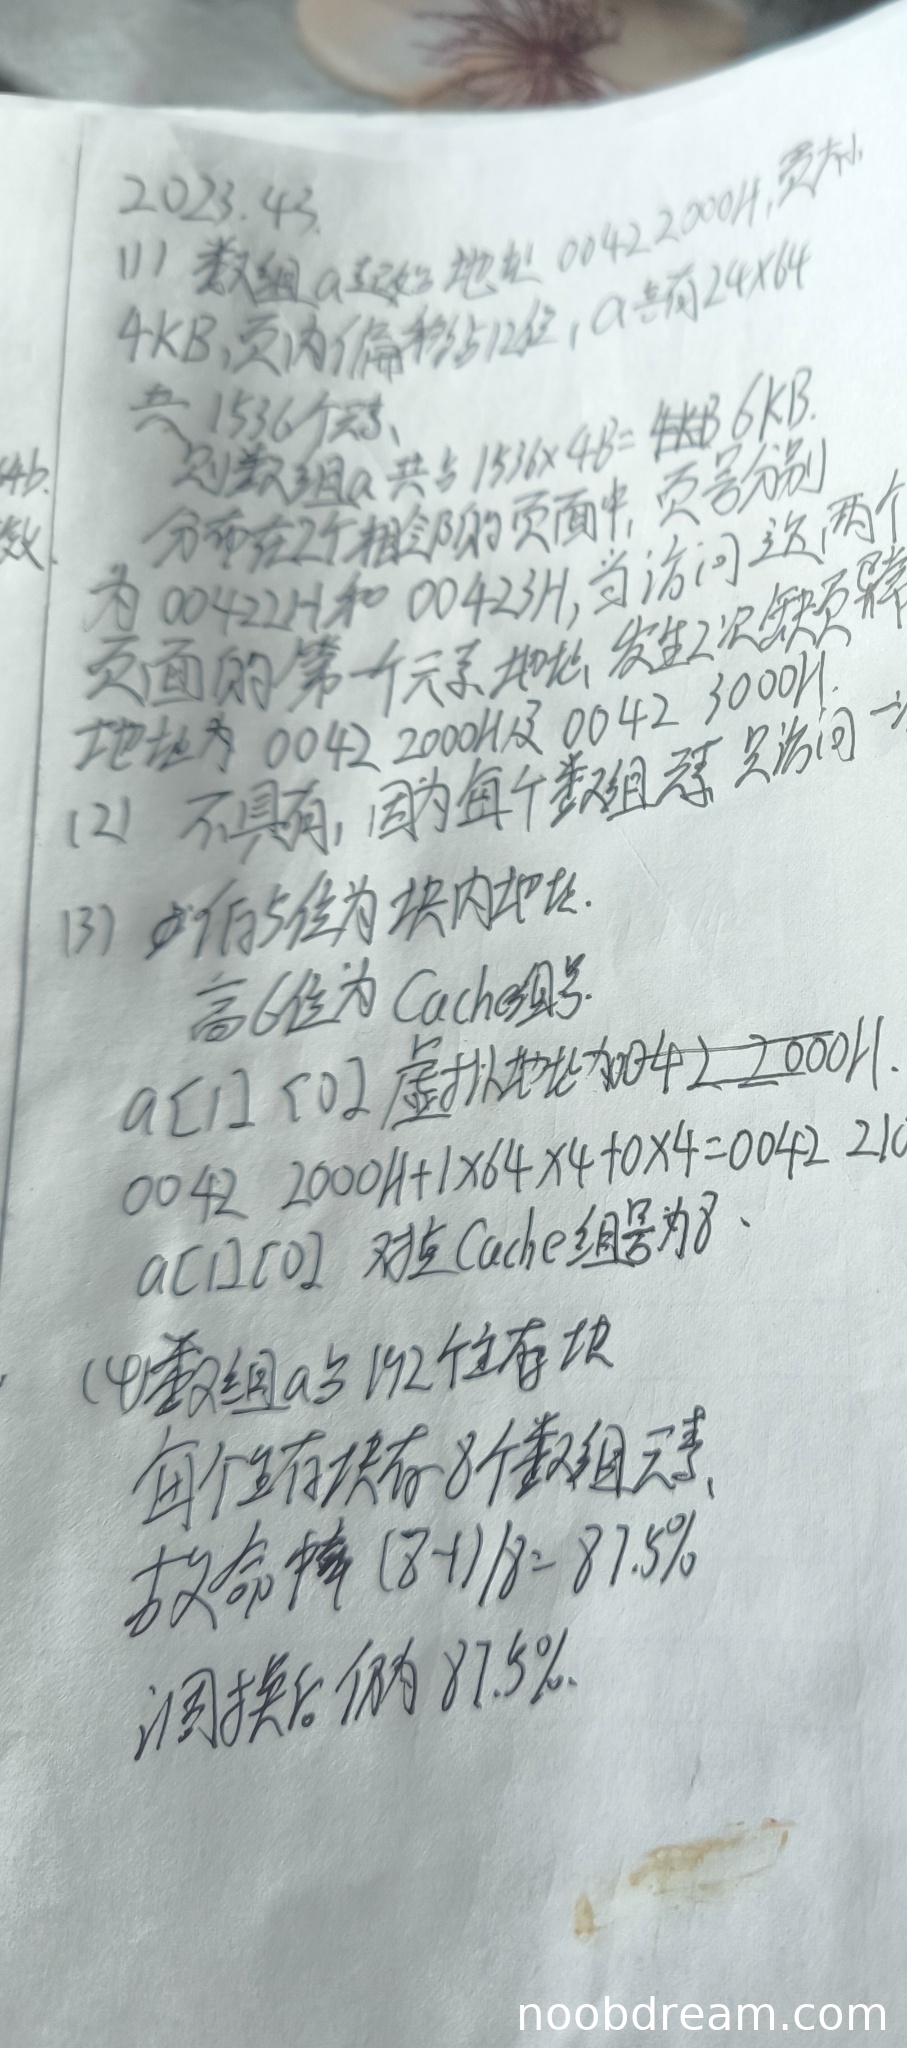 2023.43.
(1) 数组a起始地址 0042 2000H,页大小
4KB,页内偏移占12位,a共有24X64
共 1536个元素、
则数组a共占 1536X4B= 6KB.
分布在2个相邻的页面中,页号分别
为 00422H和 00423H,当访问这两个
页面的第一个元素地址、发生2次缺页异常
地址为 0042 2000H及 0042 3000H.
(2) 不具有,因为每个数组元素只访问一
(3) 低5位为块内地址.
高6位为 Cache组号.
a[1][0]虚拟地址为0042 2000H.
0042 2000H+1X64X4+0X4=0042 210
a[1][0] 对应Cache组号为8、
(4)数组a占192个主存块
每个主存块存8个数组元素、
故命中率 (8-1)/8= 87.5%
调换后仍为 87.5%.
数.
noobdream.com